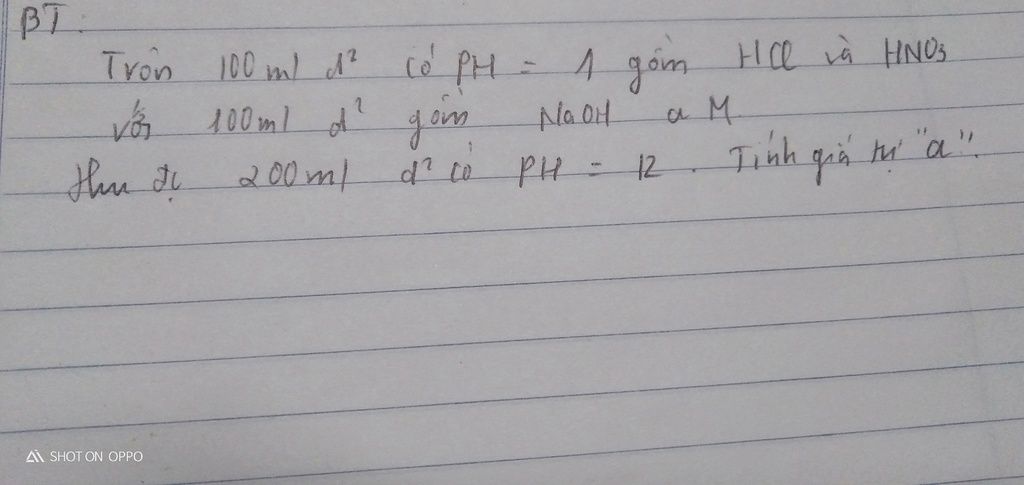 BT:
Trộn 100ml d² có PH = 1 gồm HCl và HNO₃
với 100ml d² gồm NaOH a M
thu đc 200ml d² có PH = 12. Tính giá trị "a".
SHOT ON OPPO